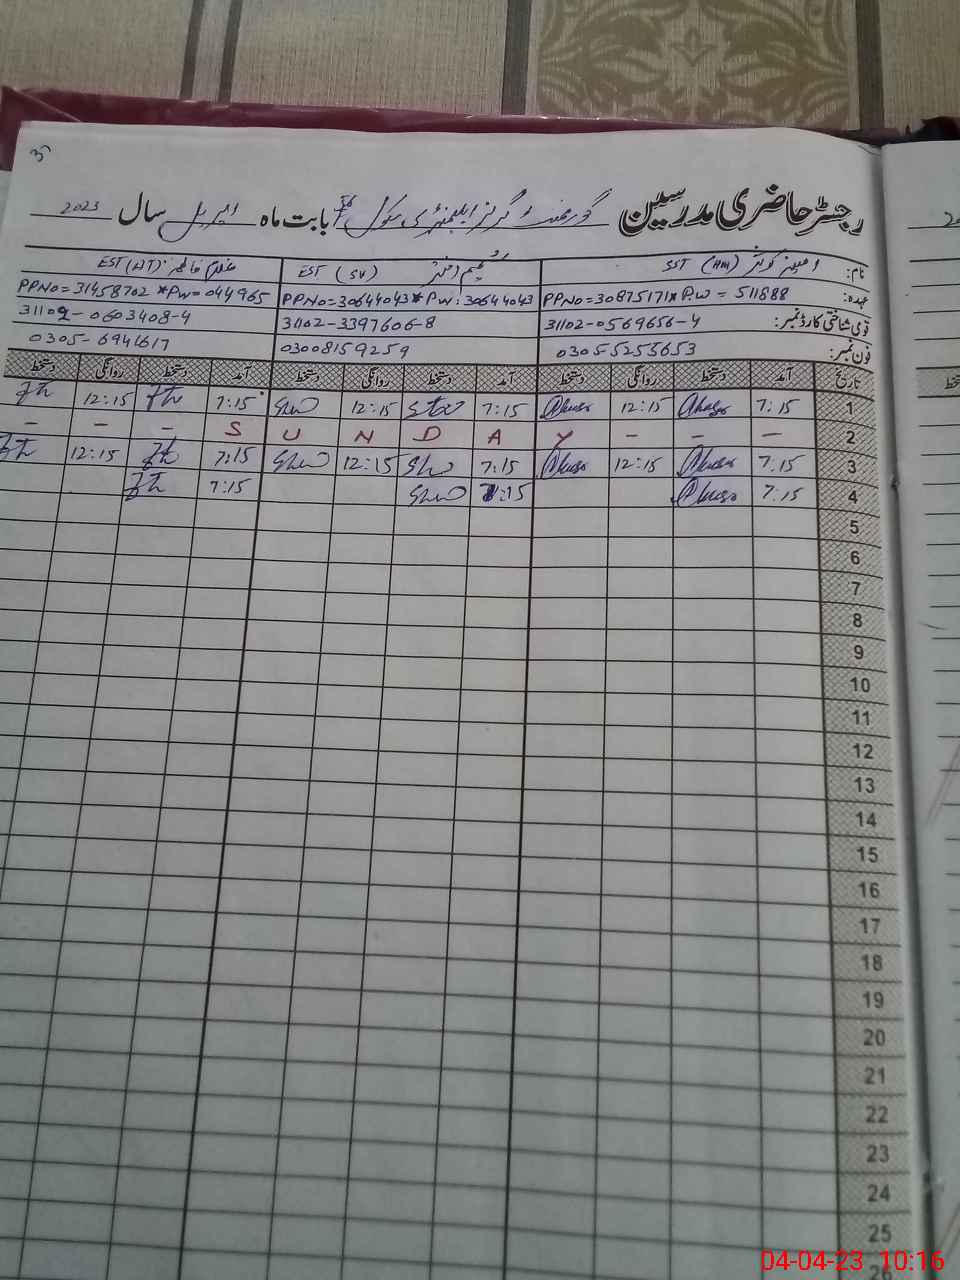 رجسٹر حاضری مدرسین گورنمنٹ گرلز ایلیمنٹری سکول بابت ماہ اپریل سال 2023
نام: SST (HM) EST (SV) EST (AT)
عہدہ: PPNo=30875171* PW = 511888 PPNo=30644043* PW: 30644043 PPNo=31458702 *PW=044965
قومی شناختی کارڈ نمبر: 31102-0569656-4 31102-3397606-8 31102-0603408-4
فون نمبر: 03055255653 03008159259 0305-6941617
تاریخ آمد دستخط روانگی دستخط آمد دستخط روانگی دستخط آمد دستخط روانگی دستخط
1 7:15 12:15 7:15 12:15 7:15 12:15
– – – S U N D A Y – – – 2
3 7:15 12:15 7:15 12:15 7:15 12:15
4 7:15 7:15 7:15
5
6
7
8
9
10
11
12
13
14
15
16
17
18
19
20
21
22
23
24
25
26
04-04-23 10:16